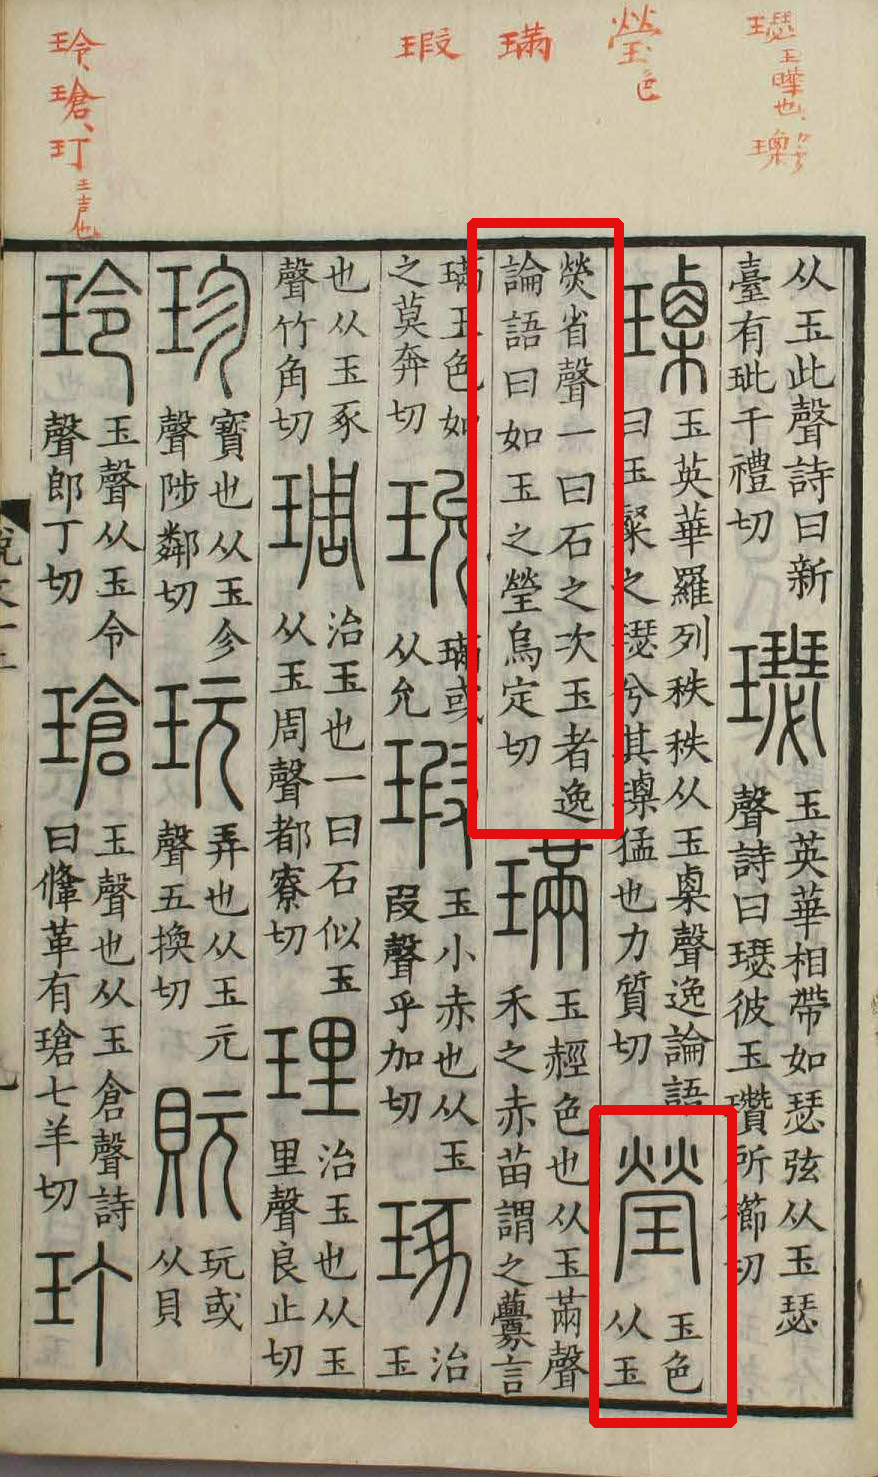 璱
玉曄也、
瑮
瑩
玉色
璊
瑕
玲、瑲、玎
从玉此聲詩曰新
臺有玼千禮切
璱
玉英華相帶如瑟弦从玉瑟
聲詩曰璱彼玉瓚所櫛切
瑮
玉英華羅列秩秩从玉㮚聲逸論語
曰玉粲之璱兮其瑮猛也力質切
瑩
玉色
从玉
熒省聲一曰石之次玉者逸
論語曰如玉之瑩烏定切
璊
玉䞓色也从玉㒼聲
禾之赤苗謂之虋言
璊玉色如
之莫奔切
玧
璊或
从允
瑕
玉小赤也从玉
叚聲乎加切
琢
治
玉
也从玉豖
聲竹角切
琱
治玉也一曰石似玉
从玉周聲都寮切
理
治玉也从玉
里聲良止切
珍
寶也从玉㐱
聲陟鄰切
玩
弄也从玉元
聲五換切
貦
玩或
从貝
玲
玉聲从玉令
聲郎丁切
瑲
玉聲也从玉倉聲詩
曰鞗革有瑲七羊切
玎
說文一上